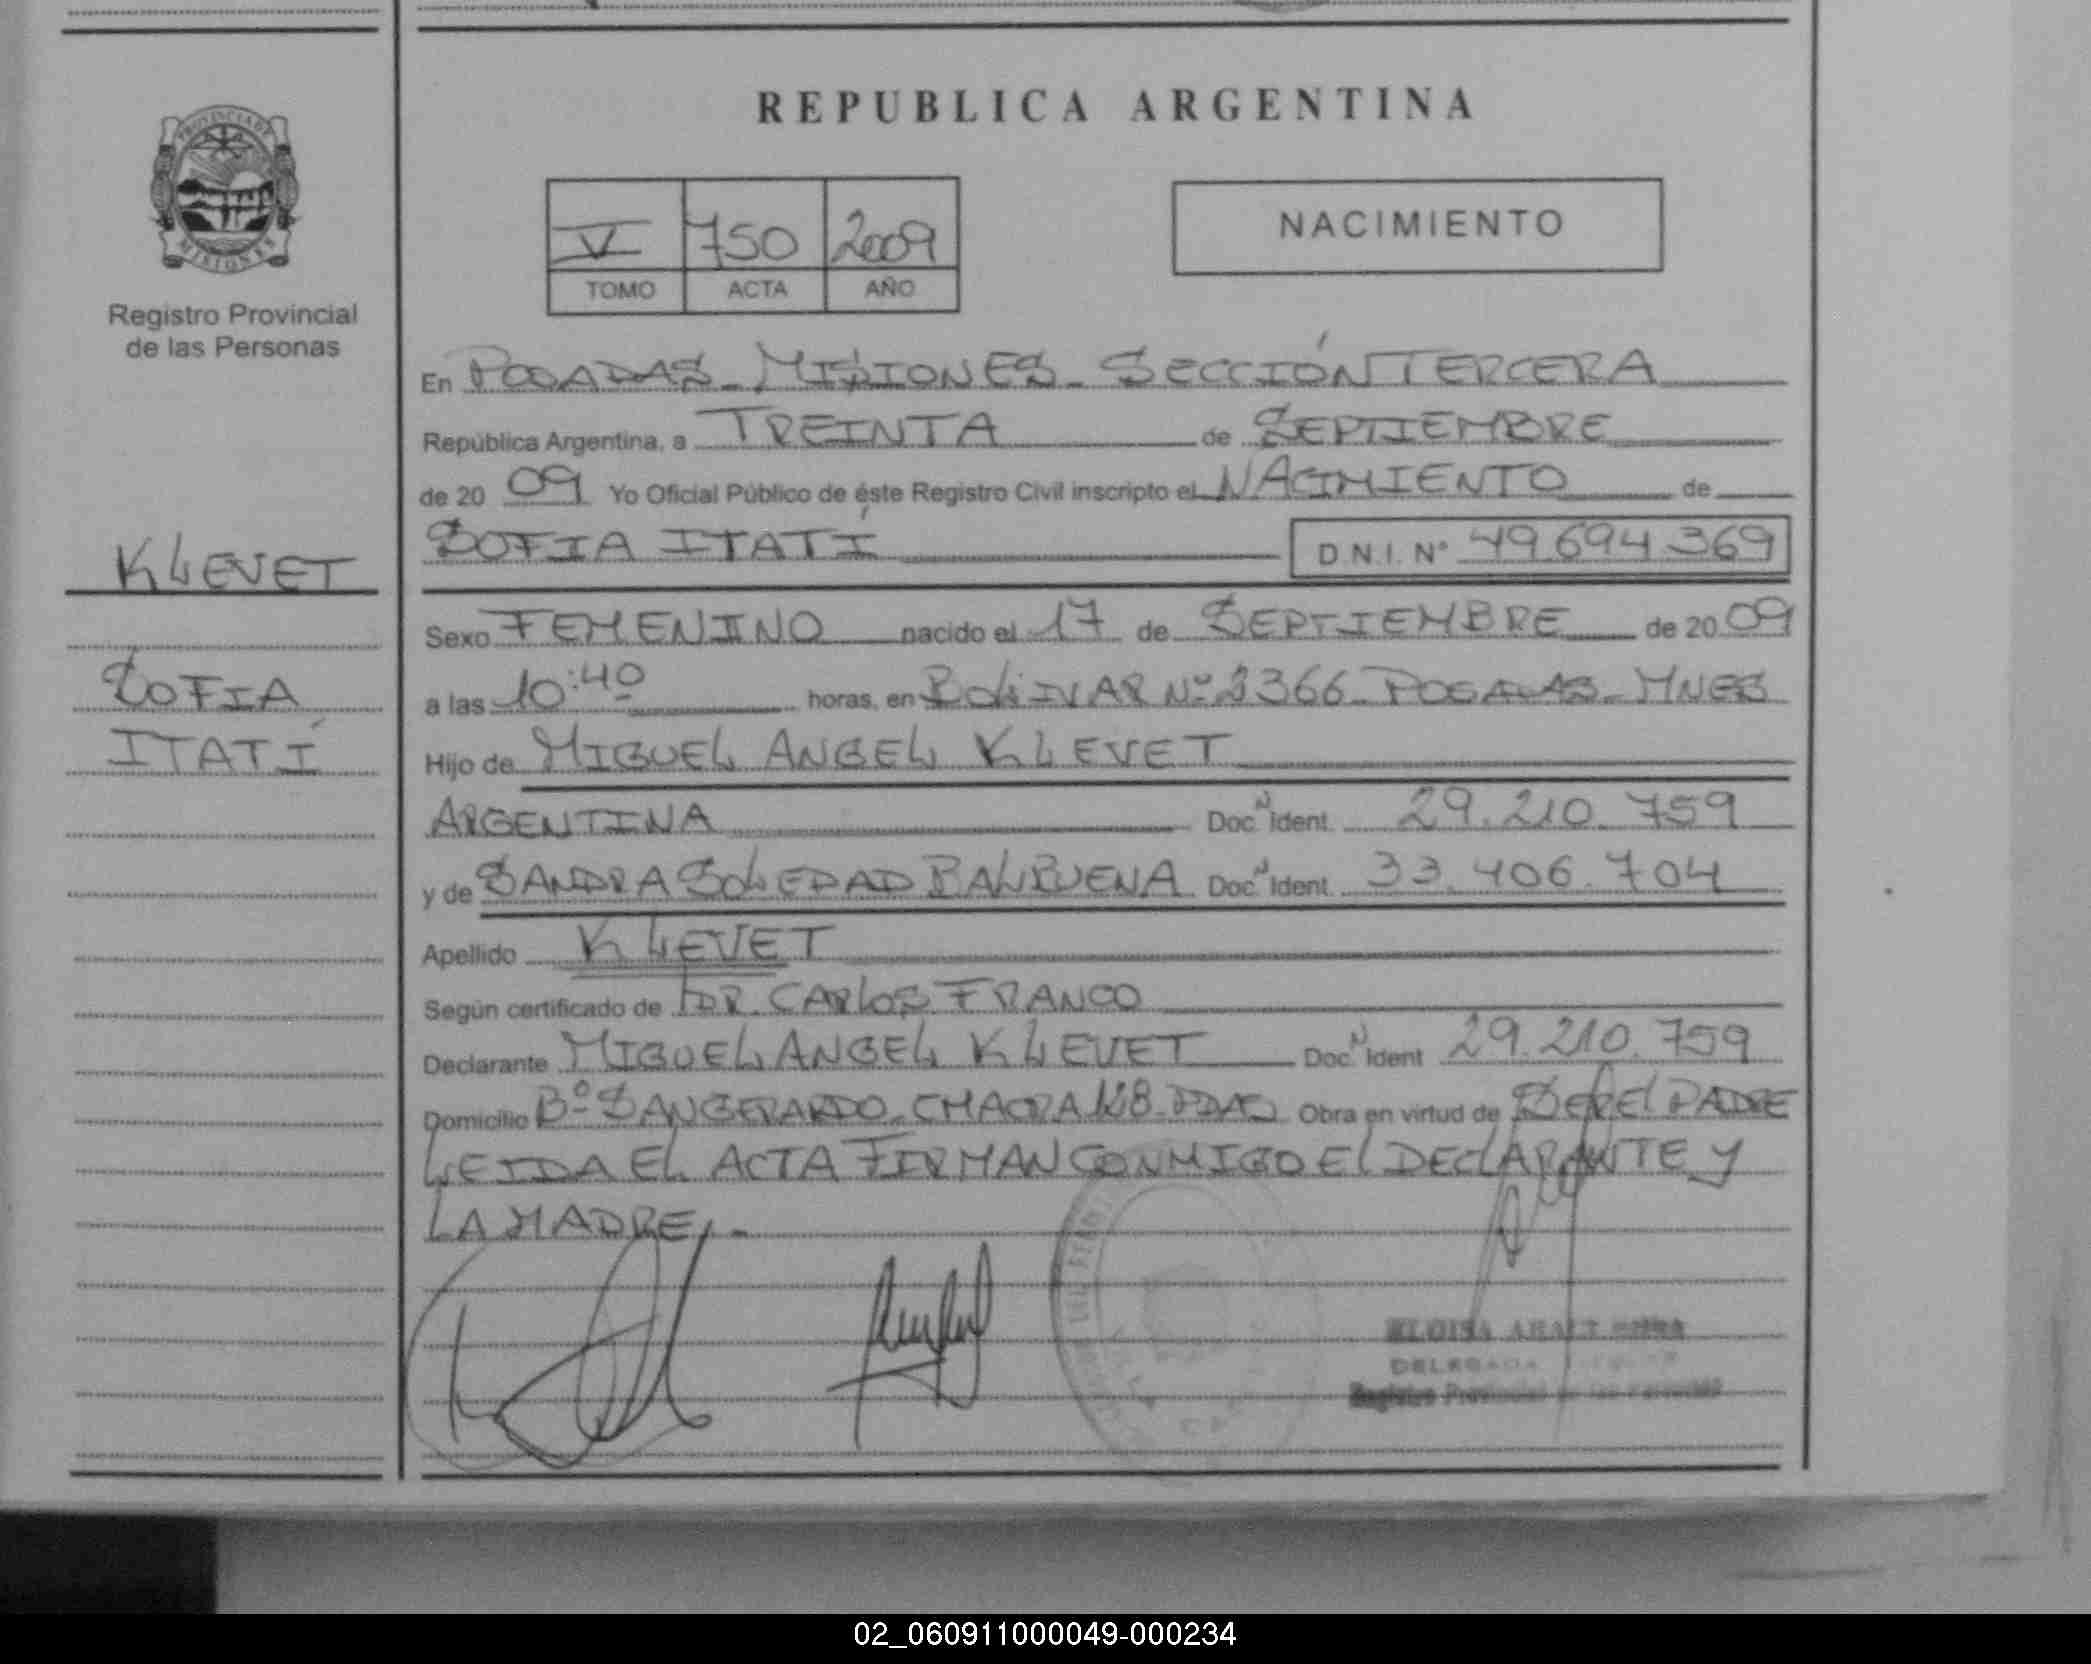 REPUBLICA ARGENTINA
PROVINCIA DE
MISIONES
Registro Provincial
de las Personas
V 750 2009
TOMO ACTA AÑO
NACIMIENTO
En POSADAS - MISIONES - SECCIÓN TERCERA
República Argentina, a TREINTA de SEPTIEMBRE
de 20 09 Yo Oficial Público de éste Registro Civil inscripto el NACIMIENTO de
SOFIA ITATÍ D.N.I. N° 49.694.369
KLEVET
SOFIA
ITATÍ
Sexo FEMENINO nacido el 17 de SEPTIEMBRE de 20 09
a las 10:40 horas, en BOLIVAR Nº 2366 - POSADAS - MNES
Hijo de MIGUEL ANGEL KLEVET
ARGENTINA Doc. N Ident. 29.210.759
y de SANDRA SOLEDAD BALBUENA Doc. N Ident. 33.406.704
Apellido KLEVET
Según certificado de DR. CARLOS FRANCO
Declarante MIGUEL ANGEL KLEVET Doc. N Ident 29.210.759
Domicilio Bº SAN GERARDO - CHACRA 128 - PDAS Obra en virtud de SER El PADRE
LEIDA EL ACTA FIRMAN CONMIGO El DEClARANTE Y
LA MADRE, -
ELOISA
DELEGADA
Registro Provincial de las Personas
02_060911000049-000234